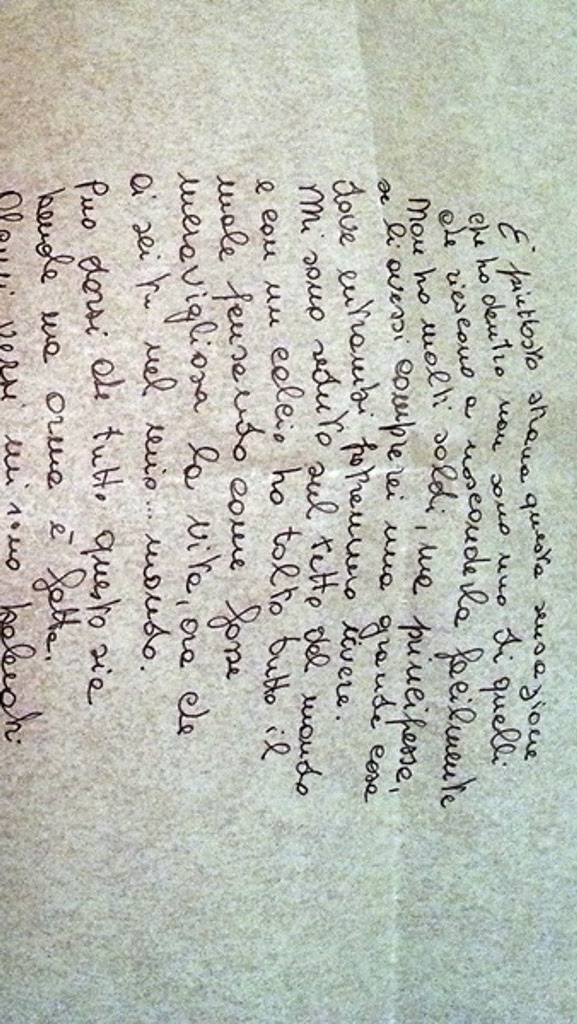 E' piuttosto strana questa sensazione
che ho dentro non sono uno di quelli
che riescono a nasconderla facilmente
Non ho molti soldi, ma principessa,
se li avessi comprerei una grande casa
dove entrambi potremmo vivere.
Mi sono seduto sul tetto del mondo
e con un calcio ho tolto tutto il
male pensando come fosse
meravigliosa la vita, ora che
ci sei tu nel mio... mondo.
Può darsi che tutto questo sia
banale ma ormai è fatta,
mi sono